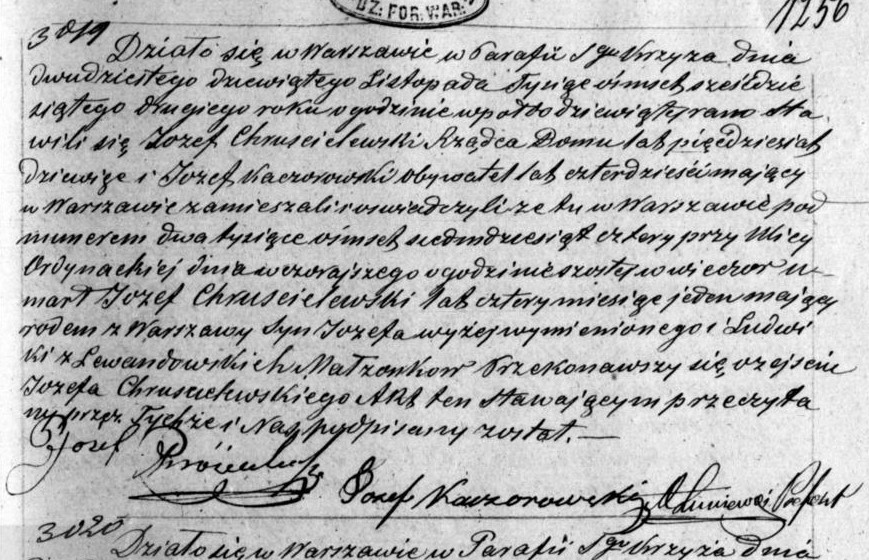 DZ. FOR. WAR.
1256
3019
Działo się w Warszawie w Parafii Sgo Krzyża dnia
dwudziestego dziewiątego Listopada Tysiąc ośmset sześćdzie
siątego drugiego roku o godzinie wpół do dziewiątej rano Sta
wili się Jozef Chruscielewski Rządca Domu lat pięćdziesiąt
dziewięć i Jozef Kaczorowski obywatel lat czterdzieści mający
w Warszawie zamieszkali i oswiadczyli że tu w Warszawie pod
numerem dwa tysiące ośmset siedmdziesiąt cztery przy Ulicy
Ordynackiej dnia wczorajszego o godzinie szostej w wieczor u-
marł Jozef Chruscielewski lat cztery miesiąc jeden mający
rodem z Warszawy Syn Jozefa wyżej wymienionego i Ludwi
ki z Lewandowskich Małżonkow Przekonawszy się o zejściu
Jozefa Chruscielewskiego Akt ten Stawającym przeczyta
ny przez Tychże i Nas podpisany został. —
Jozef
Jozef Kaczorowski
3020
Działo się w Warszawie w Parafii Sgo Krzyża dnia